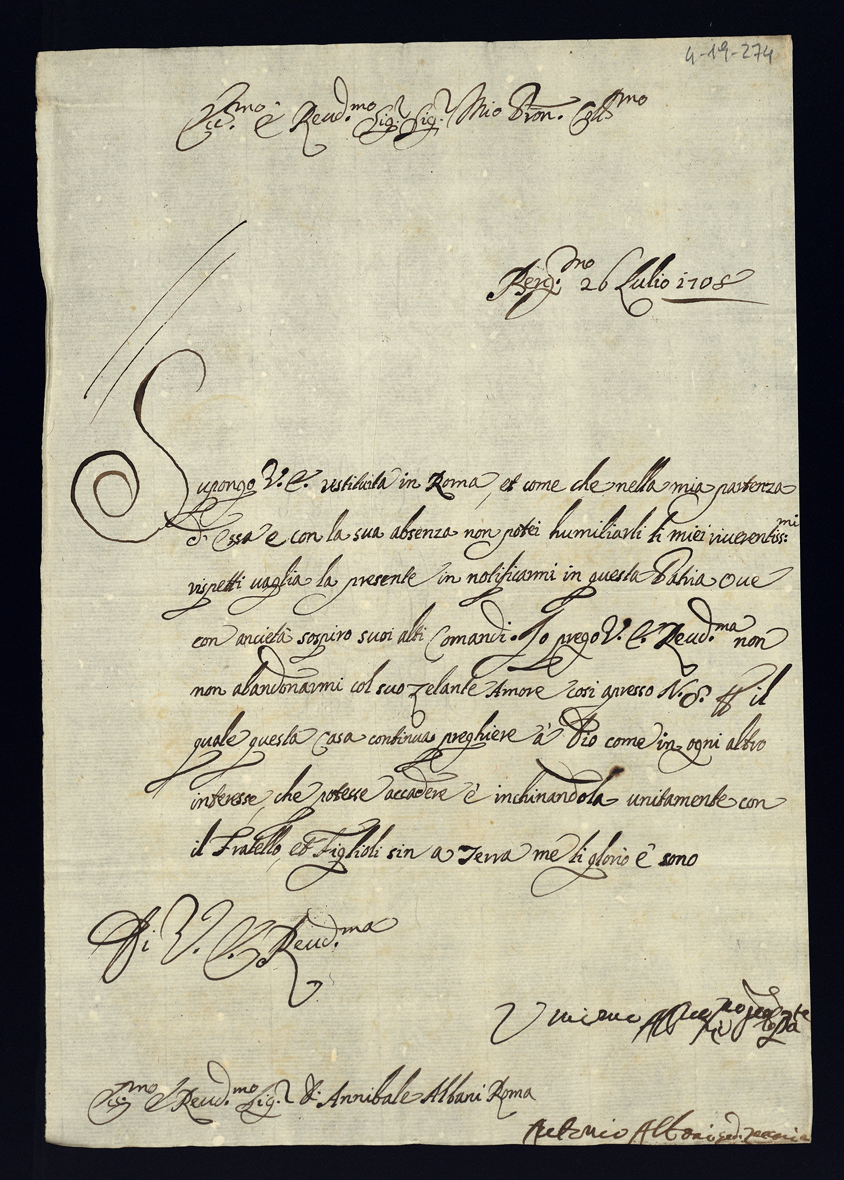 4-19-274
Ecc.mo e Reud.mo Sig.r Sig.r Mio Pron. Coll.mo
Berg.mo 26 Lulio 1708
Supongo V. E. restituita in Roma, et come che nella mia partenza
d'essa e con la sua absenza non potei humiliarli li miei riverentiss:mi
rispetti vaglia la presente in notificarmi in questa Patria oue
con ancietà sospiro suoi alti Comandi. Io prego V. E. Reud.ma non
non abandonarmi col suo zelante Amore cosi apresso N. S. il
quale questa Casa continua preghiere à Dio come in ogni altro
interesse, che potesse accadere è inchinandola unitamente con
il Fratello, et Figlioli sin a Terra me li glorio è sono
Di V. E. Reud.ma
Ecc.mo e Reud.mo Sig.r D: Annibale Albani Roma
Antonio Albani